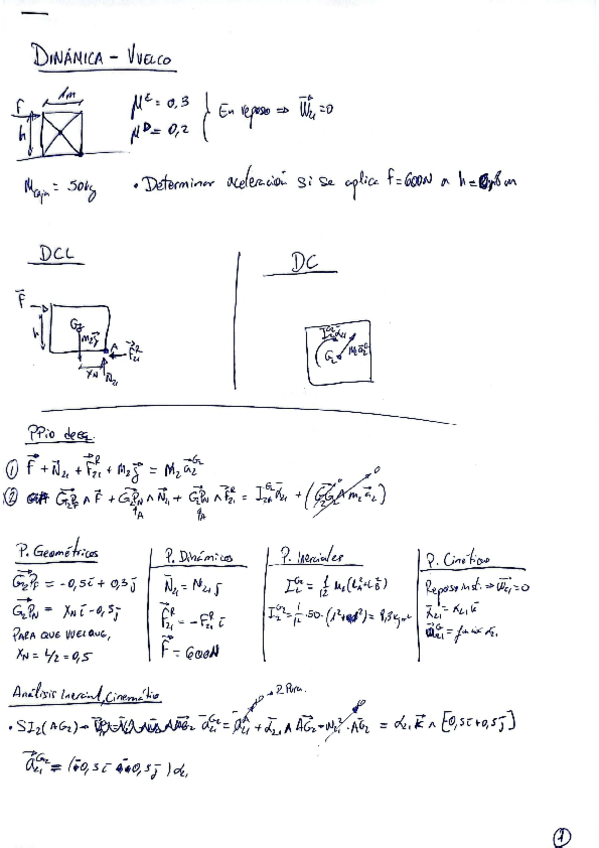 DINÁMICA - VUELCO
1m
F
h
μᴱ = 0,3
μᴰ = 0,2
En reposo ⇒ W⃗₂₁=0
M caja = 50kg
• Determinar aceleración si se aplica f=600N a h=0,8m
DCL
DC
F⃗
h
G₂
m₂g⃗
A
F⃗ᴿ₂₁
x_N
N⃗₂₁
G₂
PPio de eq.
① F⃗ + N⃗₂₁ + F⃗ᴿ₂₁ + m₂g⃗ = M₂ a⃗₂ᴳ²
② G₂P_F ∧ F⃗ + G₂P_N ∧ N⃗₂₁ + G₂P_N ∧ F⃗ᴿ₂₁ = I₂ᴳ² α⃗₂₁ + (G₂G₂ ∧ m₂ a⃗₂)
A
A
P. Geométricos
G₂P_F = -0,5i + 0,3j
G₂P_N = x_N i - 0,5j
PARA QUE VUELQUE,
x_N = L/2 = 0,5
P. Dinámicos
N⃗₂₁ = N₂₁ j
F⃗ᴿ₂₁ = -Fᴿ₂₁ i
F⃗ = 600N
P. Inerciales
I₂ᴳ² = 1/12 ·50·(1²+1²) = 8,3 kgm²
P. Cinéticos
Reposo inst. ⇒ W⃗₂₁=0
α⃗₂₁ = α₂₁ k
Análisis Inercial, Cinemático
P. Pura.
• SI₂(AG₂) → a⃗₂₁ᴳ² = a⃗₂₁ᴬ + α⃗₂₁ ∧ AG₂ - W²₂₁ · AG₂ = α₂₁ k ∧ [-0,5i+0,5j]
a⃗₂₁ᴳ² = (-0,5i - 0,5j) α₂₁
1